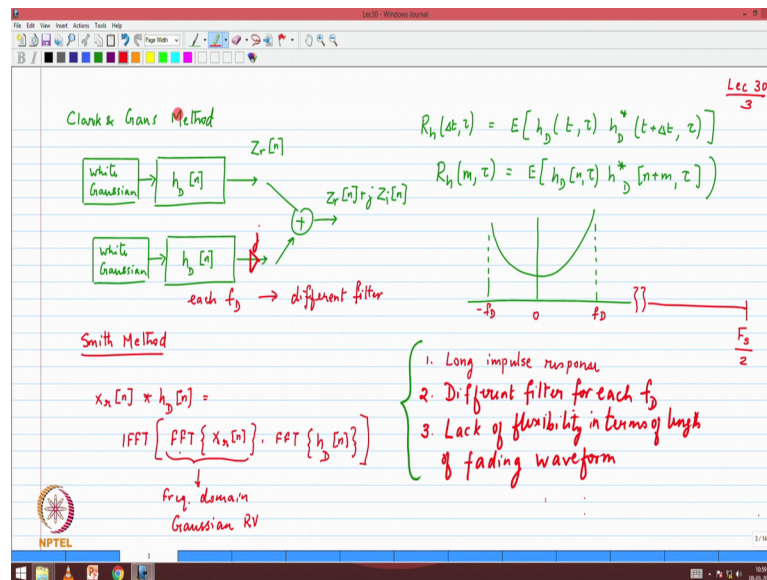 Lec30 - Windows Journal
File Edit View Insert Actions Tools Help
Page Width
B I
Lec 30
3
Clark & Gans Method
White Gaussian
h_D[n]
Z_r[n]
White Gaussian
h_D[n]
j
+
Z_r[n]+j Z_i[n]
each f_D → different filter
R_h(Δt,τ) = E[h_D(t,τ) h_D^*(t+Δt,τ)]
R_h(m,τ) = E[h_D[n,τ) h_D^*[n+m,τ])
-f_D 0 f_D
F_s
2
Smith Method
x_r[n] * h_D[n] =
IFFT[FFT{x_r[n]}. FFT{h_D[n]}]
Freq. domain
Gaussian RV
1. Long impulse response
2. Different filter for each f_D
3. Lack of flexibility in terms of length
of fading waveform
NPTEL
3
3/14
10:59